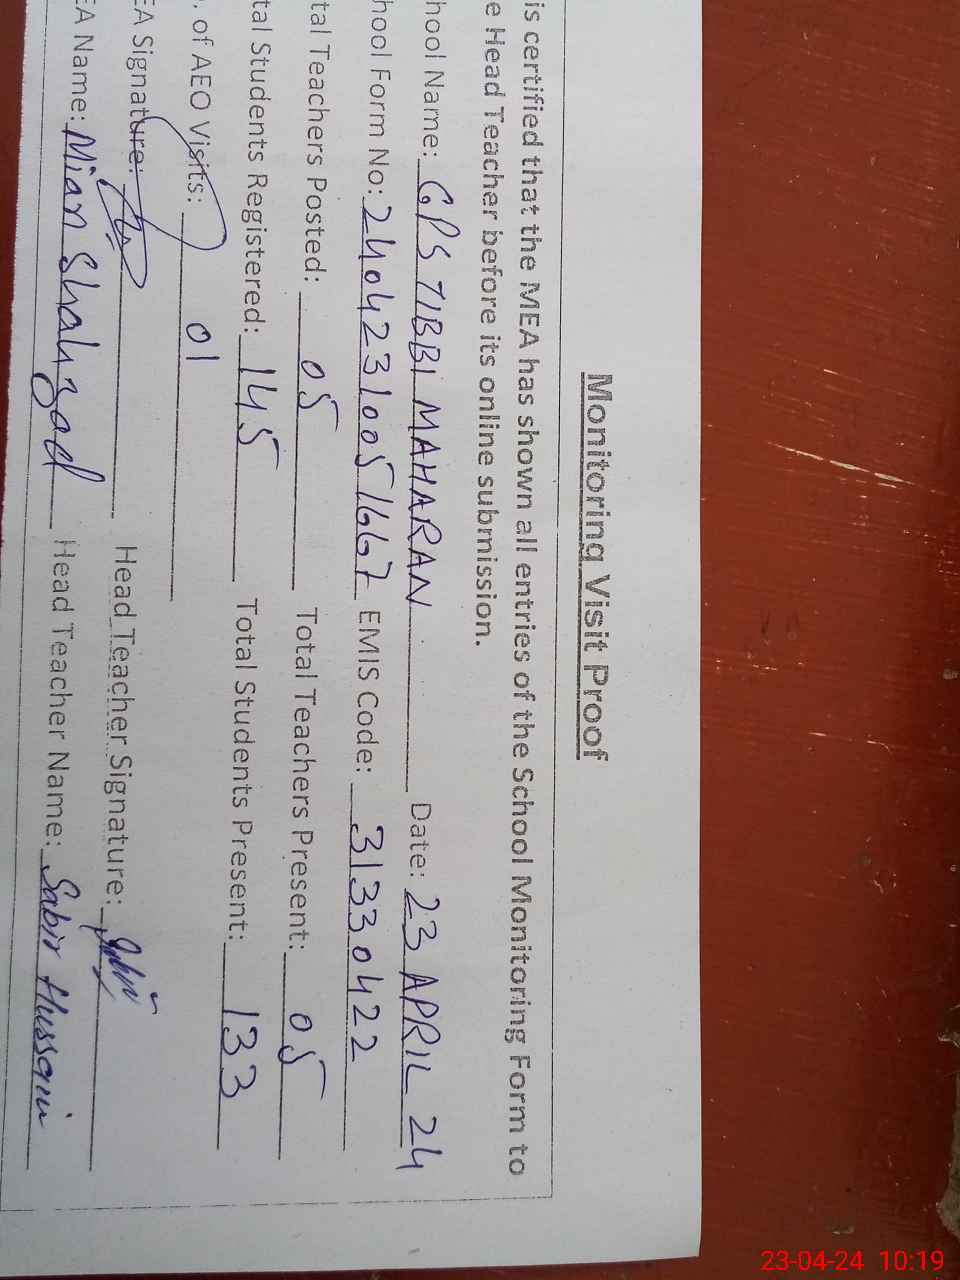 Monitoring Visit Proof
is certified that the MEA has shown all entries of the School Monitoring Form to
e Head Teacher before its online submission.
hool Name: GPS TIBBI MAHARAN Date: 23 APRIL 24
hool Form No: 24042310051667 EMIS Code: 31330422
tal Teachers Posted: 05 Total Teachers Present: 05
tal Students Registered: 145 Total Students Present: 133
. of AEO Visits: 01
EA Signature: Head Teacher Signature:
EA Name: Mian Shahzad Head Teacher Name: Sabir Hussain
23-04-24 10:19